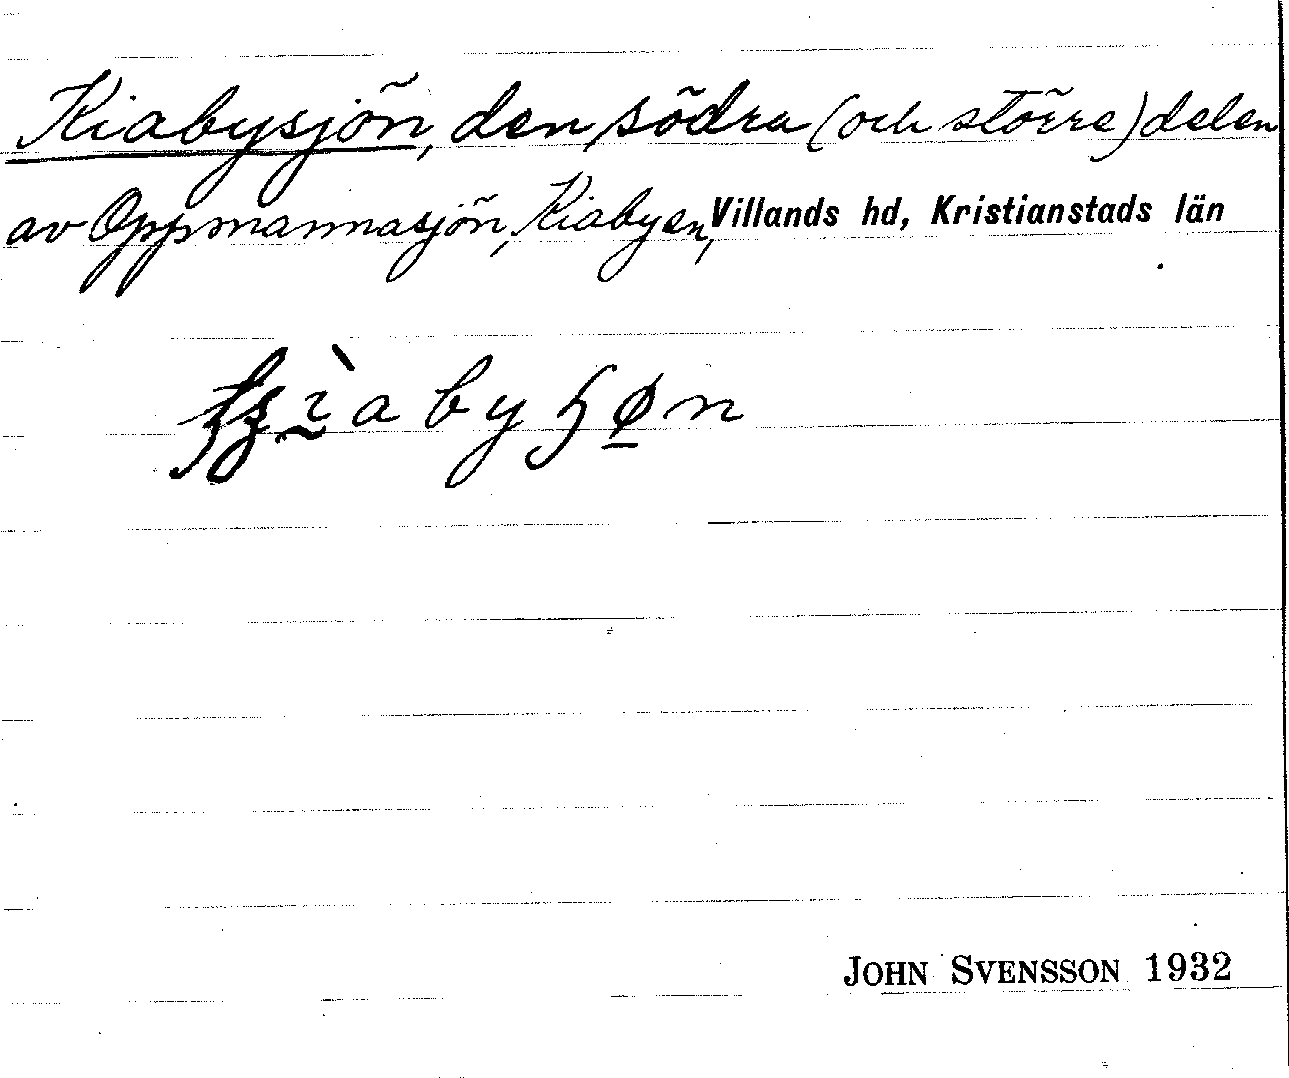 Kiabysjön, den södra (och större) delen
av Oppmannasjön, Kiabyen, Villands hd, Kristianstads län
JOHN SVENSSON 1932